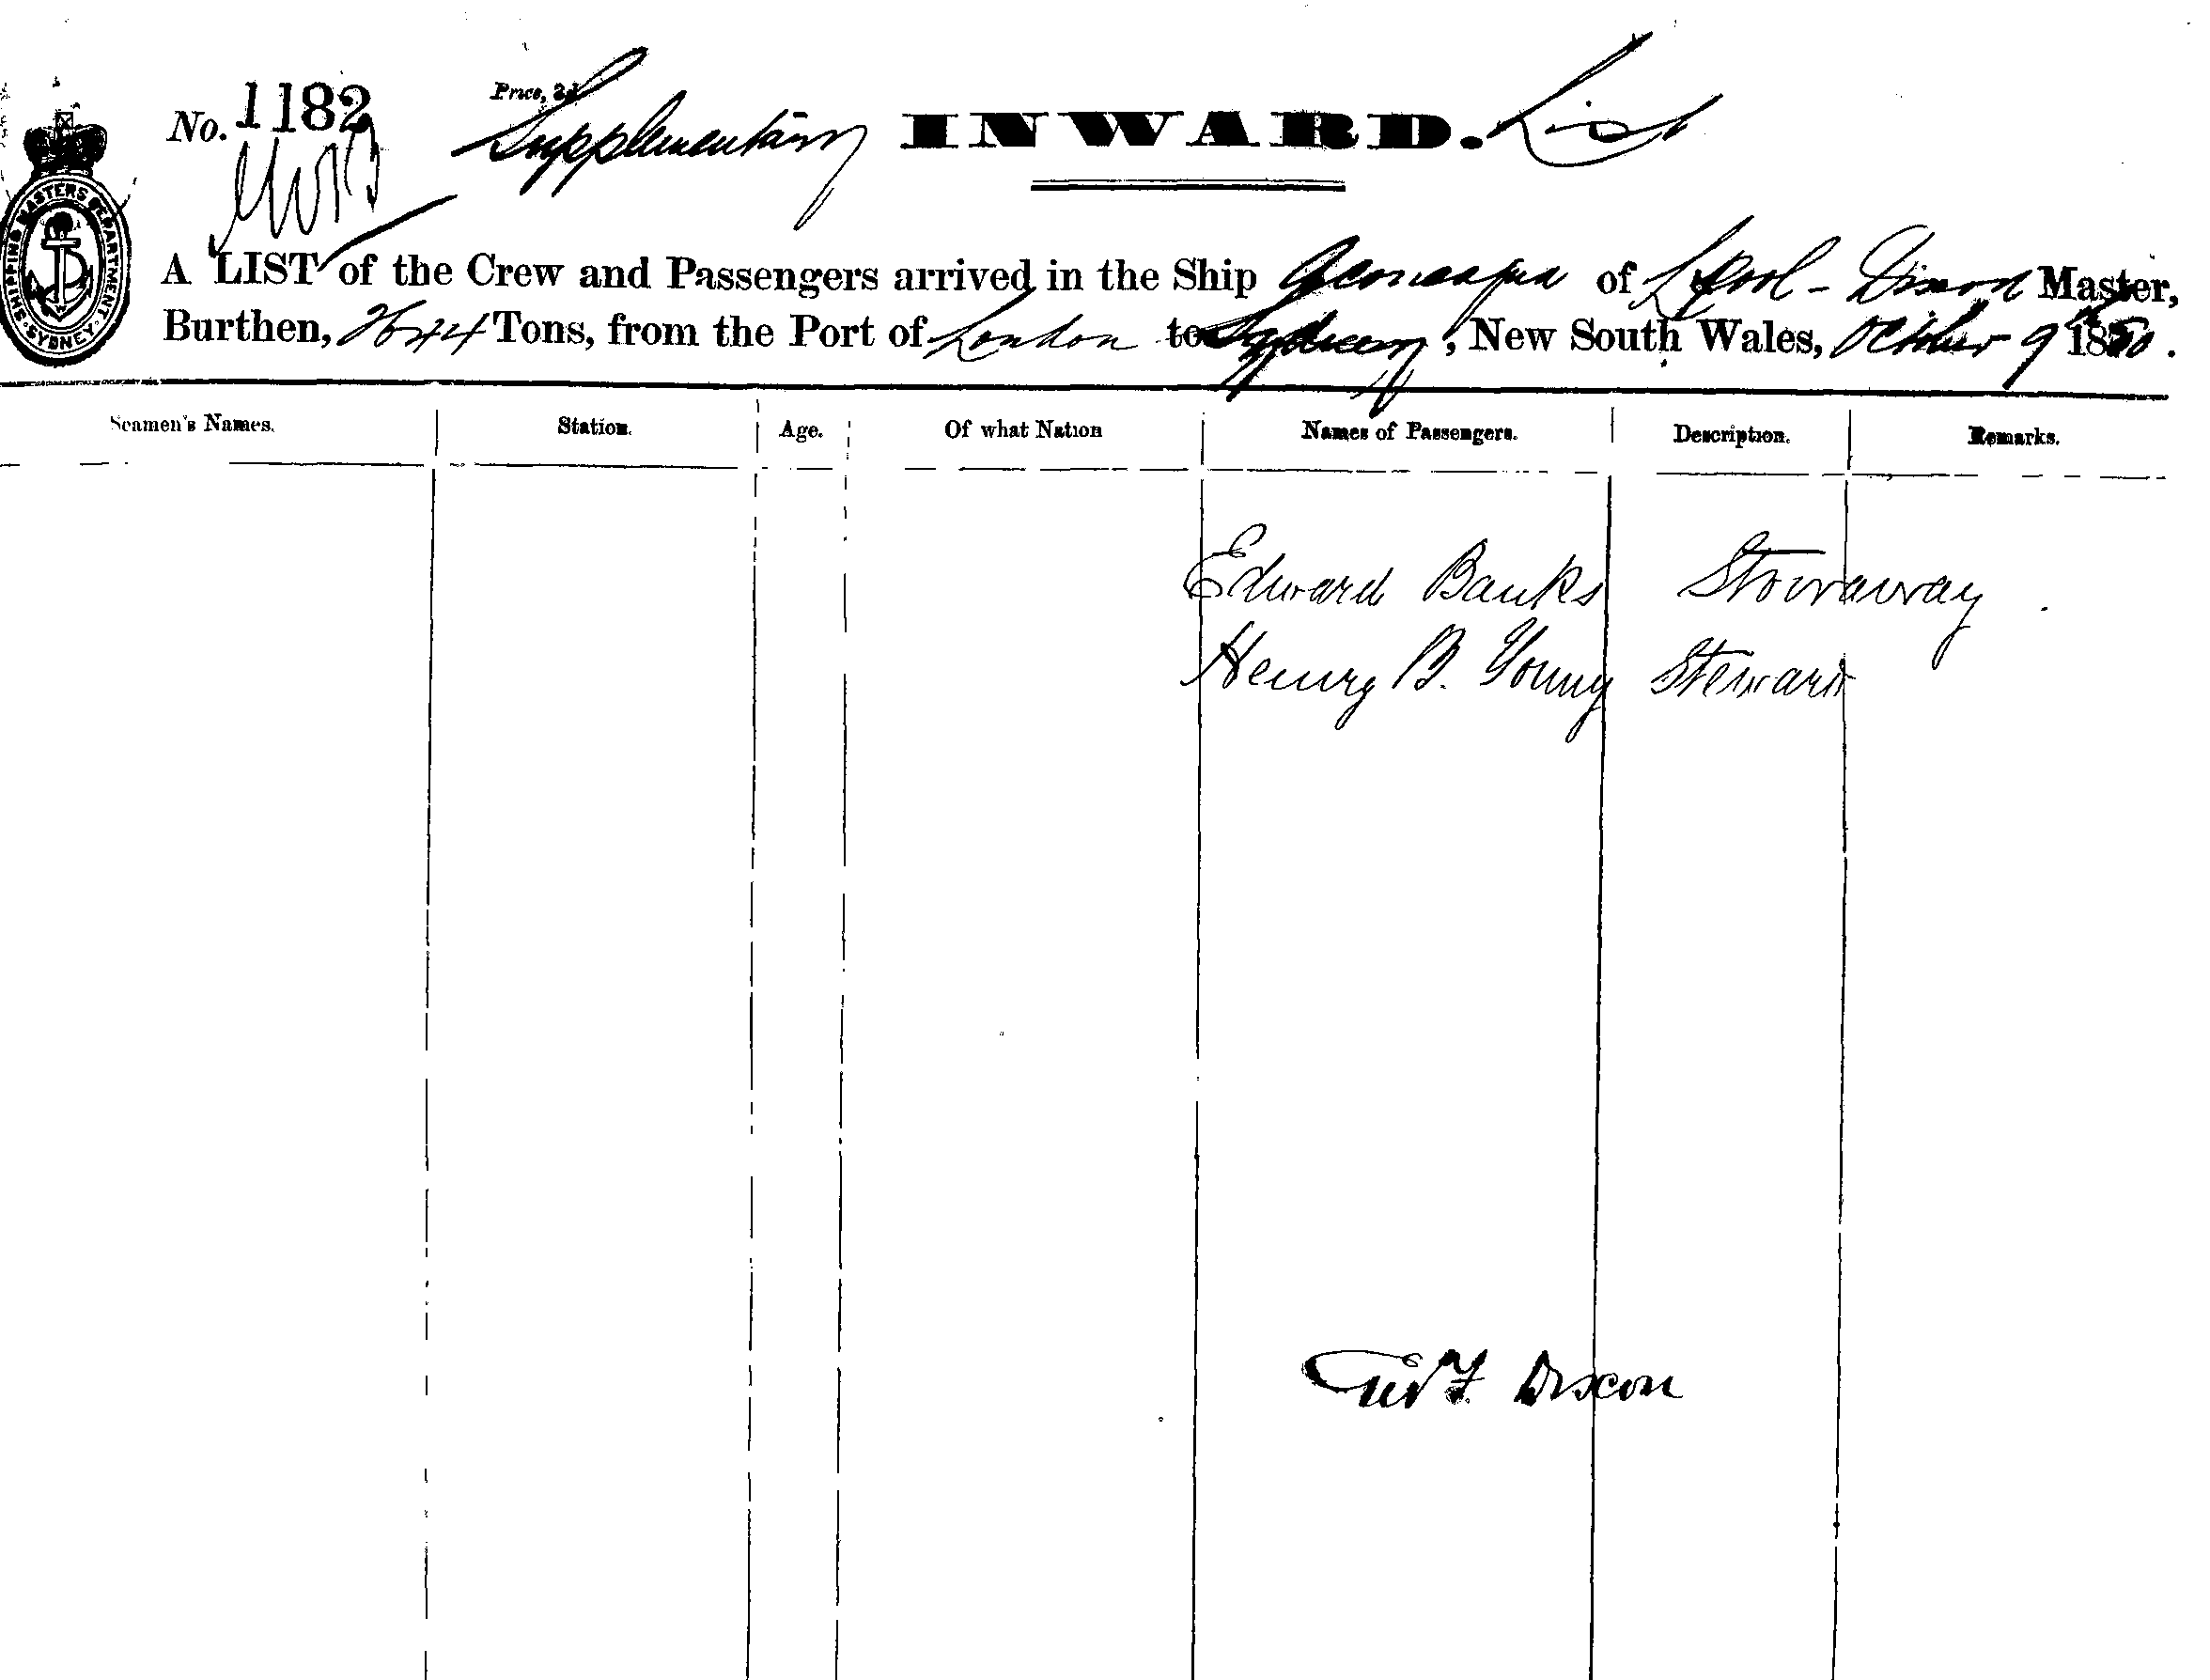 No. 1182 Price, 2d Supplementary INWARD. List
SHIPPING MASTERS DEPARTMENT SYDNEY
A LIST of the Crew and Passengers arrived in the Ship of L'pool - Dixon Master,
Burthen, 2644 Tons, from the Port of London to Sydney, New South Wales, October 9th 1880.
Seamen's Names. Station. Age. Of what Nation Names of Passengers. Description. Remarks.
Edward Banks Stowaway.
Henry B. Young Steward
Dixon